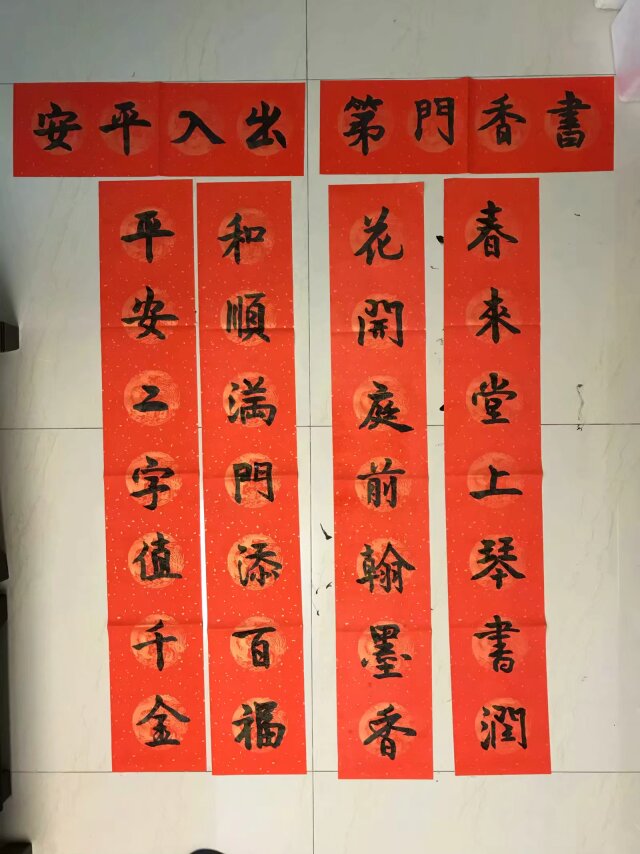 書香門第
春來堂上琴書潤
花開庭前翰墨香
出入平安
和順满門添百福
平安二字值千金